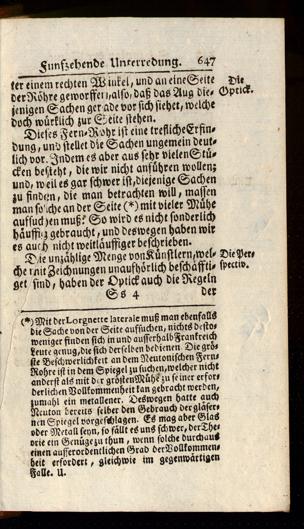 Funfzehende Unterredung. 647
ter einem rechten Winkel, und an eine Seite
der Röhre geworffen, also, daß das Aug die-
jenigen Sachen gerade vor sich siehet, welche
doch würklich zur Seite stehen.
Die
Optick.
Dieses Fern-Rohr ist eine trefliche Erfin-
dung, und stellet die Sachen ungemein deut-
lich vor. Indem es aber aus sehr vielen Stü-
cken besteht, die wir nicht anführen wollen;
und, weil es gar schwer ist, diejenige Sachen
zu finden, die man betrachten will, massen
man solche an der Seite (*) mit vieler Mühe
aufsuchen muß: So wird es nicht sonderlich
häuffig gebraucht, und deswegen haben wir
es auch nicht weitläuffiger beschrieben.
Die unzählige Menge von Künstlern, wel-
che mit Zeichnungen unaufhörlich beschäfti-
get sind, haben der Optick auch die Regeln
Die Per-
spectiv.
Ss 4 der
(*) Mit der Lorgnette laterale muß man ebenfalls
die Sache von der Seite aufsuchen, nichts desto-
weniger finden sich in und ausserhalb Frankreich
Leute genug, die sich derselben bedienen. Die grö-
ste Beschwerlichkeit an dem Neutonischen Fern-
Rohre ist in dem Spiegel zu suchen, welcher nicht
anderst als mit der grösten Mühe zu seiner erfor-
derlichen Vollkommenheit kan gebracht werden,
zumahl ein metallener. Deswegen hatte auch
Neuton bereits selber den Gebrauch der gläser-
nen Spiegel vorgeschlagen. Es mag aber Glas
oder Metall seyn, so fällt es uns schwer, der The-
orie ein Genüge zu thun, wenn solche durchaus
einen ausserordentlichen Grad der Vollkommen-
heit erfordert, gleichwie im gegenwärtigen
Falle. U.